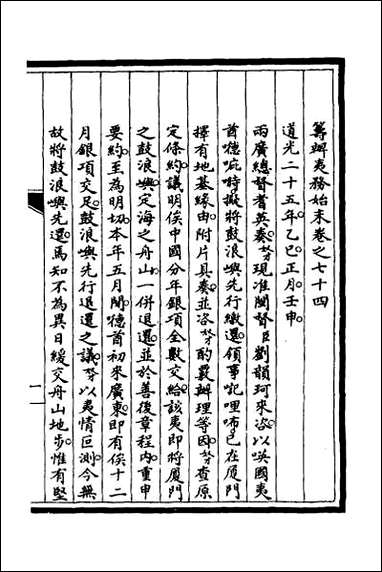 籌辦夷務始末卷之七十四
道光二十五年乙巳正月壬申
兩廣總督耆英奏。竊現准閩督臣劉韻珂來咨。以𠸄國夷
酋噫呃時擬將鼓浪嶼先行繳還。領事㕶哩咘已在厦門
擇有地基緣由。附片具奏。並咨竊酌覈辦理等因。竊查原
定條約。議明俟中國分年銀項全數交給。該夷即將厦門
之鼓浪嶼。定海之舟山。一併退還。並於善後章程內。重申
要約。至為明切。本年五月間。噫酋初來廣東。即有俟十二
月銀項交足。鼓浪嶼先行退還之議。竊以夷情叵測。今無
故將鼓浪嶼先還。焉知不為異日緩交舟山地步。惟有堅
一